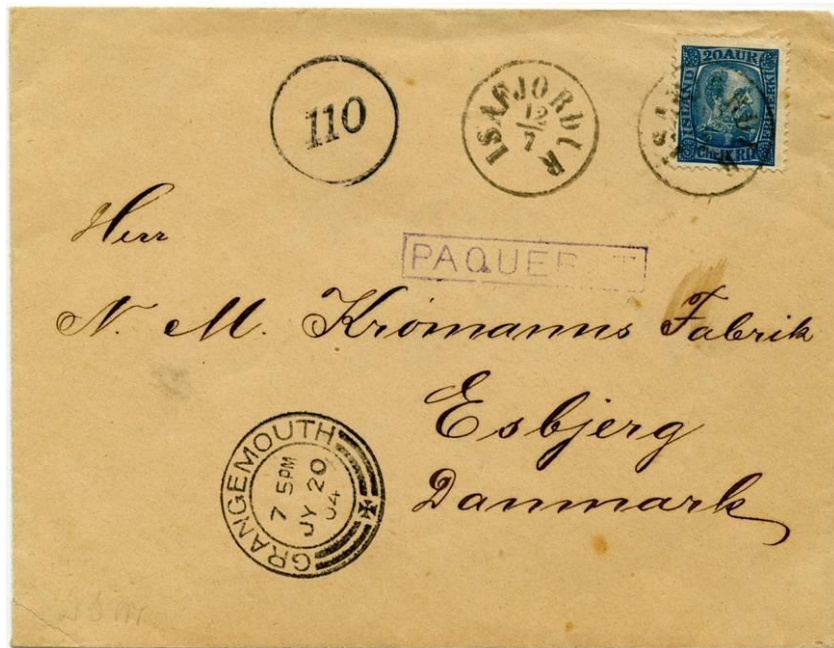 110
ISAFJORDUR
12
7
20 AUR
ISLAND
PAQUEBOT
Herr
N. M. Krömanns Fabrik
Esbjerg
Danmark
GRANGEMOUTH
7 5 PM
JY 20
04